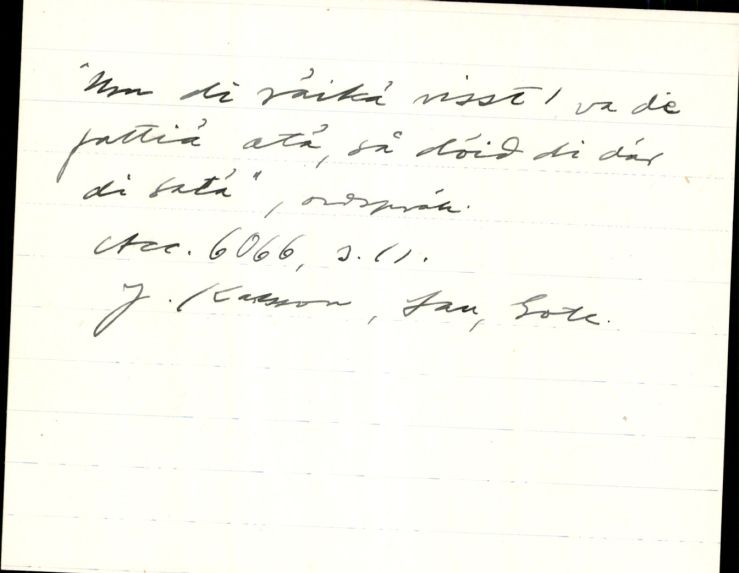 "Um di räikå visst! va de
fattiå atå, så döid di där
di satå", ordspråk.
Acc. 6066, s. 11.
J. Karlsson, Lau, Gotl.